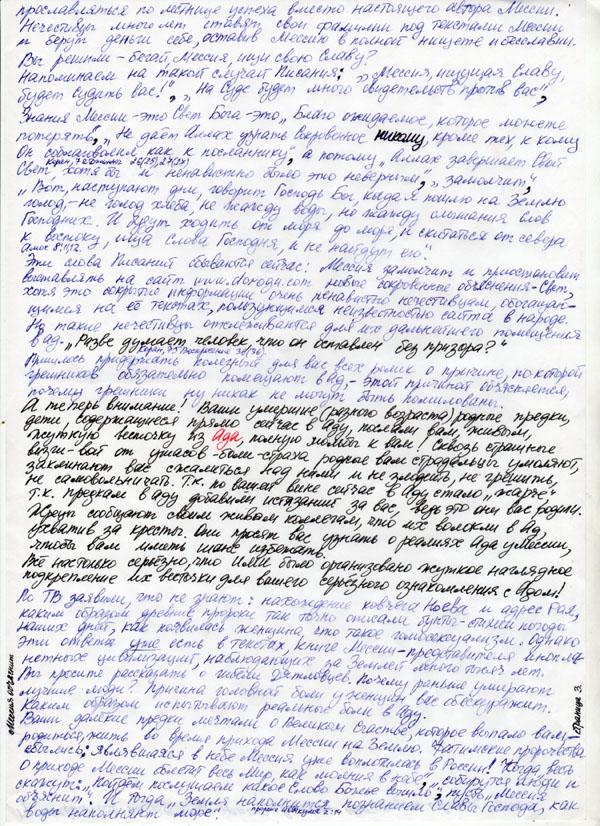 прославляться по лестнице успеха вместо настоящего автора Мессии.
Нечестивцы много лет ставят свои фамилии под текстами Мессии
и берут деньги себе, оставив Мессию в полной нищете и бесславии.
Вы решили - бегай, Мессия, ищи свою Славу?
Напоминаем на такой случай Писания: „Мессия, ищущая Славу,
будет судить вас!", „На Суде будет много свидетельств против вас",
Знания Мессии - это Свет Бога - это „Благо ожидаемое, которое можете
потерять", „Не даёт Аллах узнать сокровенное никому, кроме тех, к кому
Он соблаговолил как к посланнику", а потому „Аллах завершает Свой
Свет, хотя бы и ненавистно было это неверным", „замолчит",
„Вот, наступают дни, говорит Господь Бог, когда Я пошлю на Землю
голод, - не голод хлеба, не жажду воды, но жажду слышания Слов
Господних. И будут ходить от моря до моря, и скитаться от севера
к востоку, ища Слова Господня, и не найдут его".
Эти слова Писаний сбываются сейчас: Мессия замолчит и приостановит
выставлять на сайт новые сокровенные объяснения - Свет,
хотя это сокрытие информации очень ненавистно нечестивцам, обогащаю-
щимся на её текстах, пользующимся неизвестностью сайта в народе.
Но такие нечестивцы отслеживаются для их дальнейшего помещения
в ад. „Разве думает человек, что он оставлен без призора?"
Пришлось придержать полезный для вас всех ролик о причине, по которой
грешников обязательно помещают в Ад, - этой причиной объясняется,
почему грешники ну никак не могут быть помилованы.
А теперь внимание! Ваши умершие (разного возраста) родные предки,
дети, содержащиеся прямо сейчас в Аду, послали вам, живым,
жуткую весточку из Ада, полную мольбы к вам! Сквозь страшные
визги-вой от ужасов-боли-страха родные вам страдальцы умоляют,
заклинают вас сжалиться над ними и не злодеить, не грешить,
не самовольничать. Т.к. по вашей вине сейчас в Аду стало „жарче"
т.к. предкам в аду добавили истязание за вас, ведь это они вас родили.
Жрецы сообщают своим живым коллегам, что их волокли в Ад,
ухватив за кресты. Они просят вас узнать о реалиях Ада у Мессии,
чтобы вам иметь шанс избежать.
Всё настолько серьёзно, что Ими было организовано жуткое наглядное
подкрепление их весточки для вашего серьёзного ознакомления с Адом!
По ТВ заявили, что не знают: нахождение ковчега Ноева и адрес Рая,
каким образом древние пророки так точно описали бунты-стихии погоды
наших дней, как появилась женщина, что такое гомосексуализм. Однако
эти ответы уже есть в текстах, книге Мессии - представителя инопла-
нетных цивилизаций, наблюдающих за Землёй много тысяч лет.
Вы просите рассказать о гибели Дятловцев. Почему раньше умирают
лучшие люди? Причина головной боли у женщин вас обескуражит.
Каким образом испытывают реально боли в Аду.
Ваши далёкие предки мечтали о Великом Счастье, которое выпало вам -
родиться, жить во время прихода Мессии на Землю. Фатимские пророчества
сбылись: являвшаяся в небе Мессия уже воплотилась в России! Когда весть
о приходе Мессии облетит весь Мир, как молния в небе", „соберутся люди и
скажут: „пойдём послушаем какое Слово Божье вышло", „пусть Мессия
объяснит". И тогда „Земля наполнится познанием Славы Господа, как
воды наполняют море" пророк Аввакум 2:14
Страница 3.